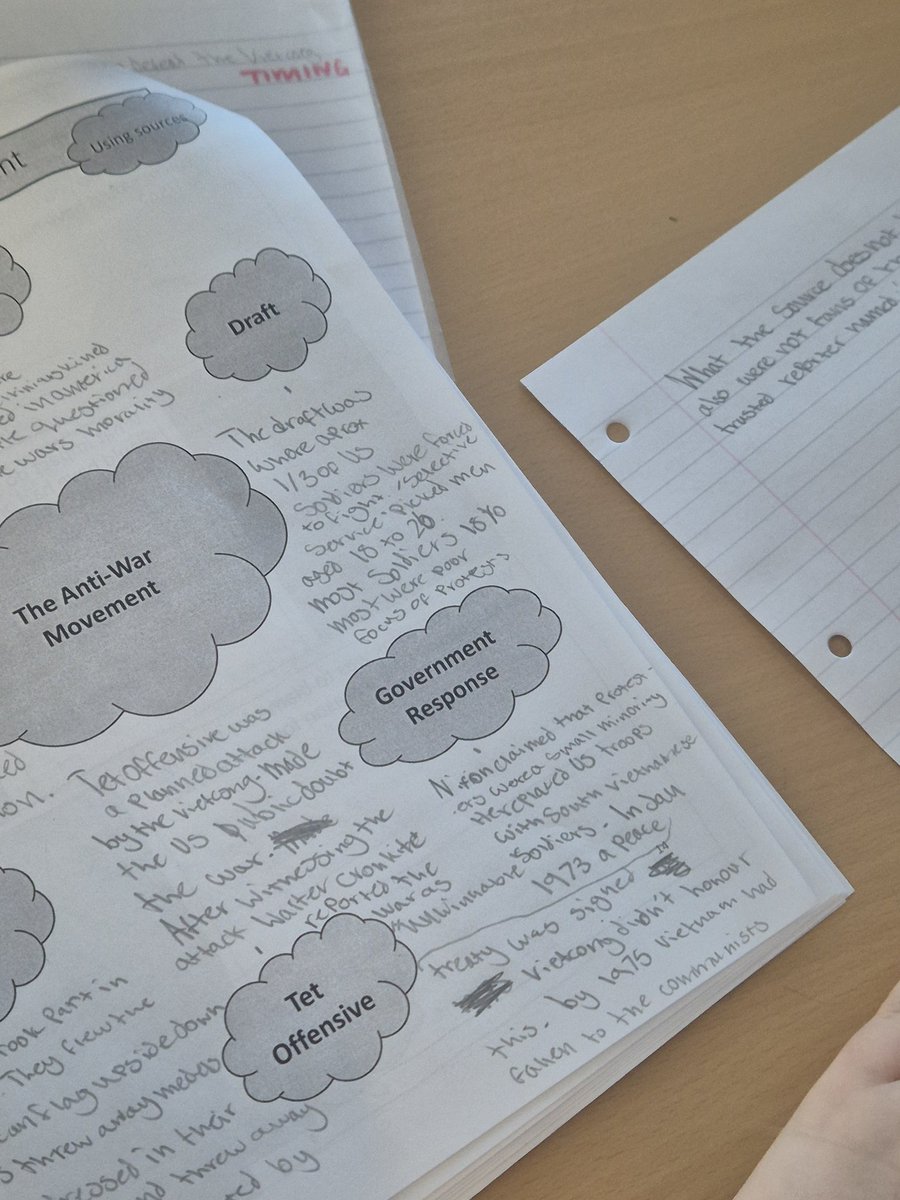 the Vietcong
TIMING
nt
Using sources
Draft
in America
questioned
wars morality
The draft was
where aprox
1/3 of US
Soldiers were forced
to fight. 'Selective
Service' picked men
aged 18 to 26.
most soldiers 18%
most were poor
focus of Protests
The Anti-War
Movement
Government
Response
Nixon claimed that Protest-
ers were a small minority
He replaced US troops
with South Vietnamese
Soldiers. In Jan
1973 a Peace
treaty was signed
Vietcong didn't honour
this. by 1975 Vietnam had
fallen to the communists
ion.
Tet offensive was
a planned attack
by the vietcong. Made
the US public doubt
the war.
After witnessing the
attack Walter Cronkite
reported the
war as
"unwinnable"
Tet
Offensive
took Part in
They flew the
flag upside down
threw away medals
dressed in their
and threw away
ted by
What the Source does not
also were not fans of
trusted reporter named